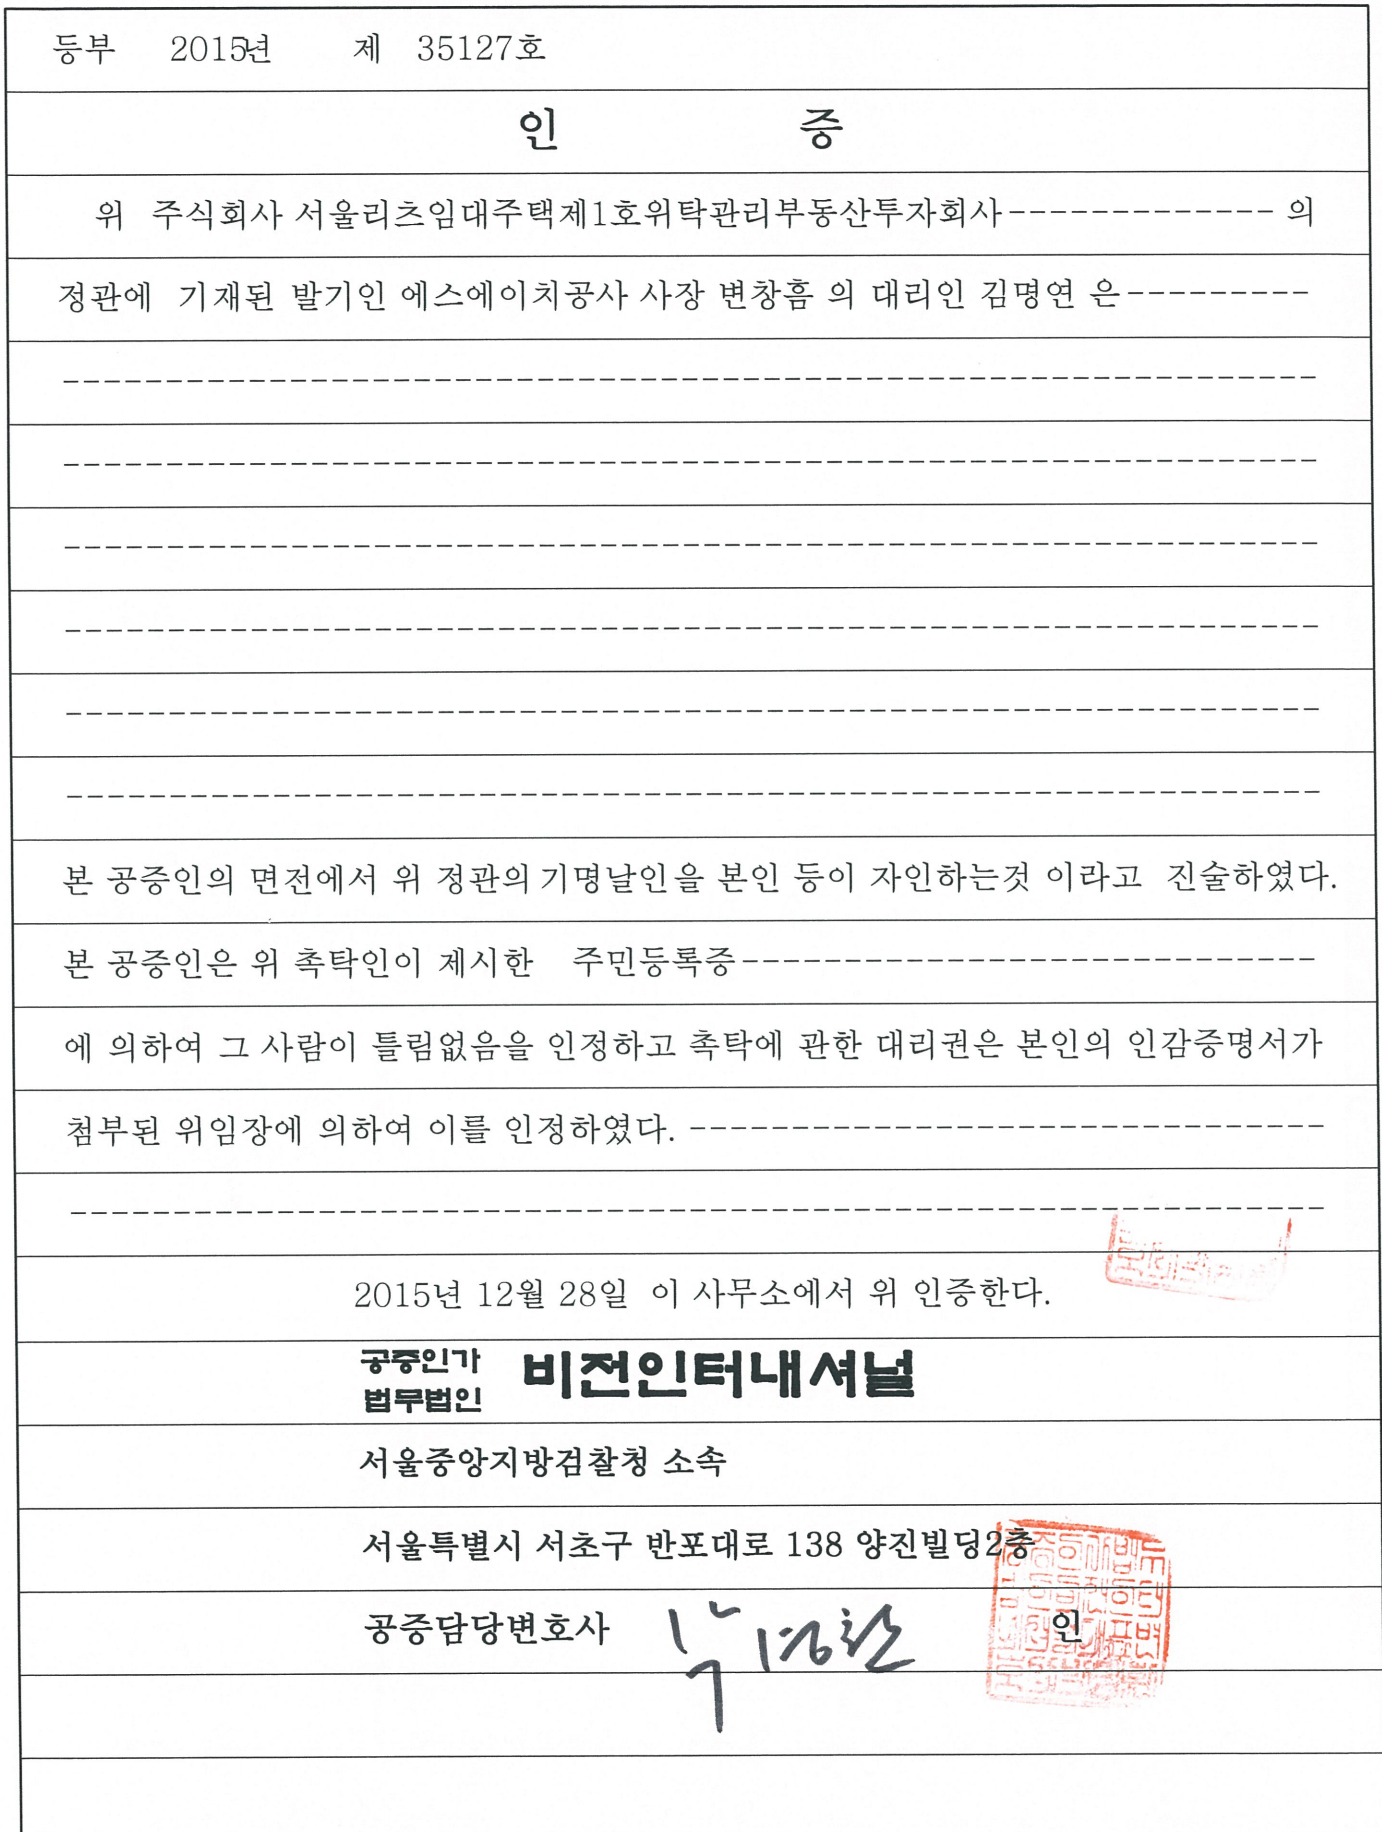 등부 2015년 제 35127호
인 증
위 주식회사 서울리츠임대주택제1호위탁관리부동산투자회사------------- 의
정관에 기재된 발기인 에스에이치공사 사장 변창흠 의 대리인 김명연 은---------
본 공증인의 면전에서 위 정관의 기명날인을 본인 등이 자인하는것 이라고 진술하였다.
본 공증인은 위 촉탁인이 제시한 주민등록증----------------------------
에 의하여 그 사람이 틀림없음을 인정하고 촉탁에 관한 대리권은 본인의 인감증명서가
첨부된 위임장에 의하여 이를 인정하였다. -------------------------------
2015년 12월 28일 이 사무소에서 위 인증한다.
공증인가
법무법인 비전인터내셔널
서울중앙지방검찰청 소속
서울특별시 서초구 반포대로 138 양진빌딩2층
공증담당변호사 인